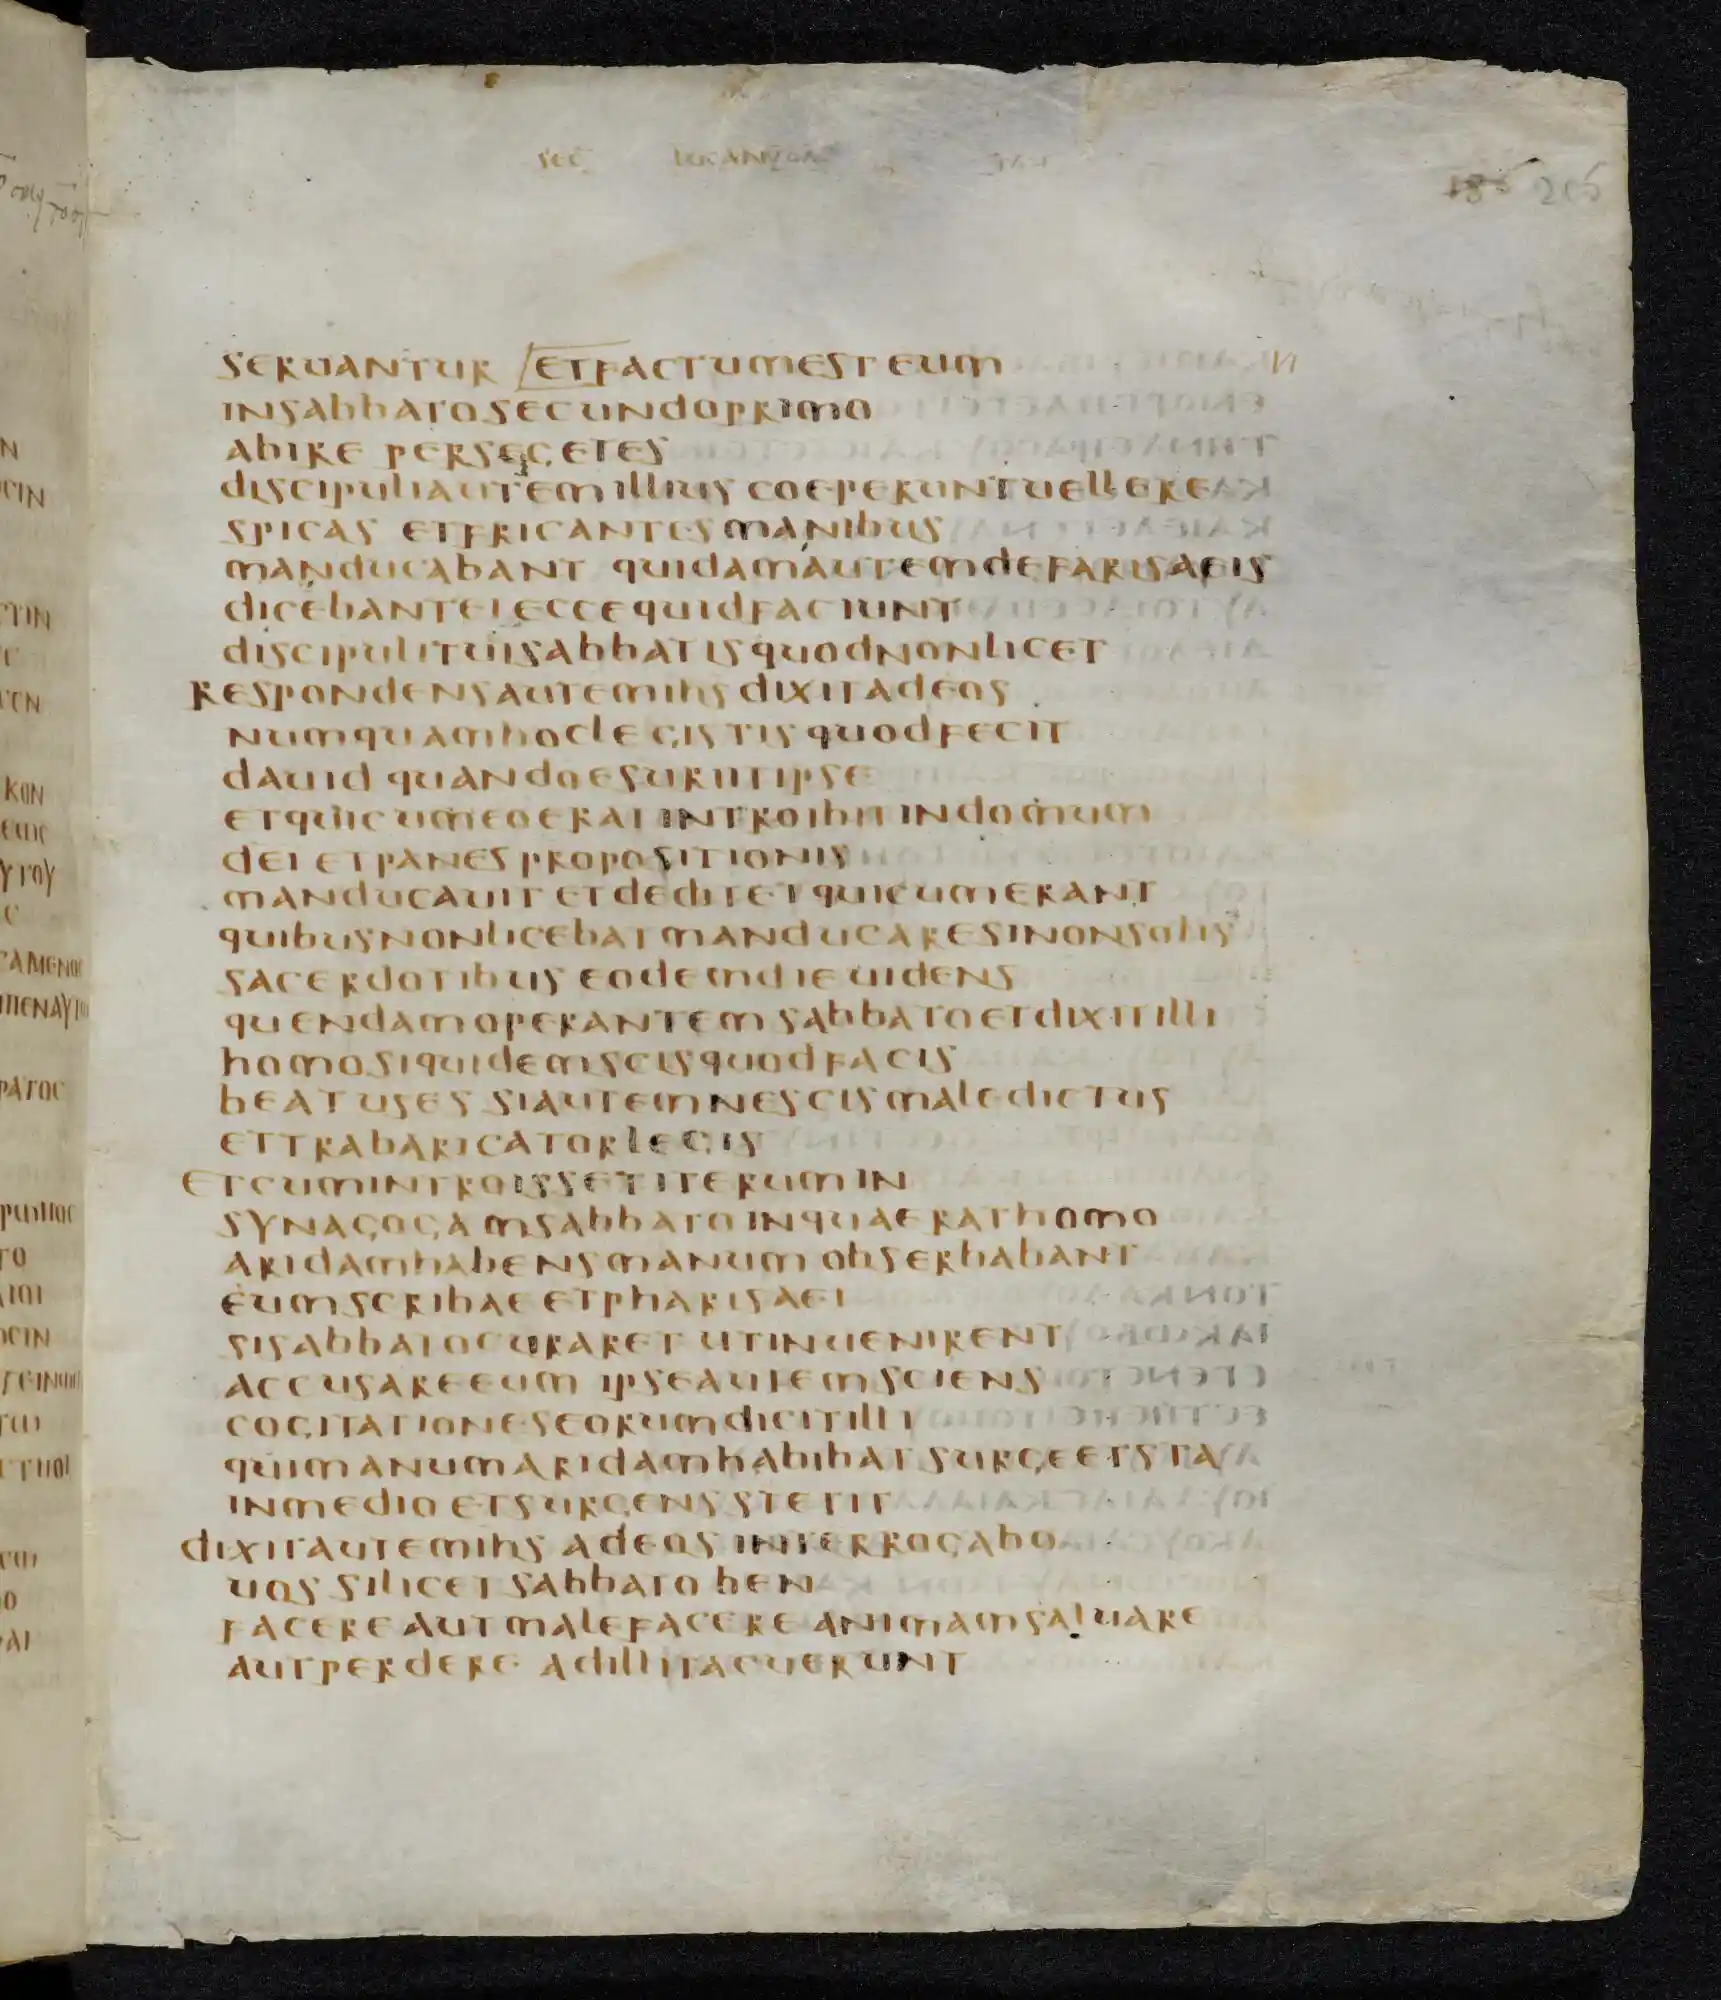 SEC LUCAN
186 205
SERUANTUR ETFACTUMEST EUM
INSABBATOSECUNDOPRIMO
ABIRE PERSEGETES
DISCIPULIAUTEMILLIUS COEPERUNTUELLERE
SPICAS ETFRICANTESMANIBUS
MANDUCABANT QUIDAMAUTEMDEFARISAEIS
DICEBANTEIECCEQUIDFACIUNT
DISCIPULITUISABBATISQUODNONLICET
RESPONDENSAUTEMIHS DIXITADEOS
NUMQUAMHOCLEGISTISQUODFECIT
DAUID QUANDOESURIITIPSE
ETQUICUMEOERATINTROIBITINDOMUM
DEI ETPANESPROPOSITIONIS
MANDUCAUIT ETDEDITETQUICUMERANT
QUIBUSNONLICEBATMANDUCARESINONSOLIS
SACERDOTIBUS EODEMDIEUIDENS
QUENDAMOPERANTEMSABBATOETDIXITILLI
HOMOSIQUIDEMSCISQUODFACIS
BEATUSES SIAUTEMNESCISMALEDICTUS
ETTRABARICATORLEGIS
ETCUMINTROISSETITERUMIN
SYNAGOGAMSABBATOINQUAERATHOMO
ARIDAMHABENSMANUMOBSERBABANT
EUMSCRIBAEETPHARISAEI
SISABBATOCURARET UTINUENIRENT
ACCUSAREEUM IPSEAUTEMSCIENS
COGITATIONESEORUMDICITILLI
QUIMANUMARIDAMHABIBAT SURGEETSTA
INMEDIOETSURGENSSTETIT
DIXITAUTEMIHS ADEOS INTERROGABO
UOS SILICETSABBATOBEN
FACEREAUTMALEFACERE ANIMAMSALUARE
AUTPERDERE ADILLITACUERUNT